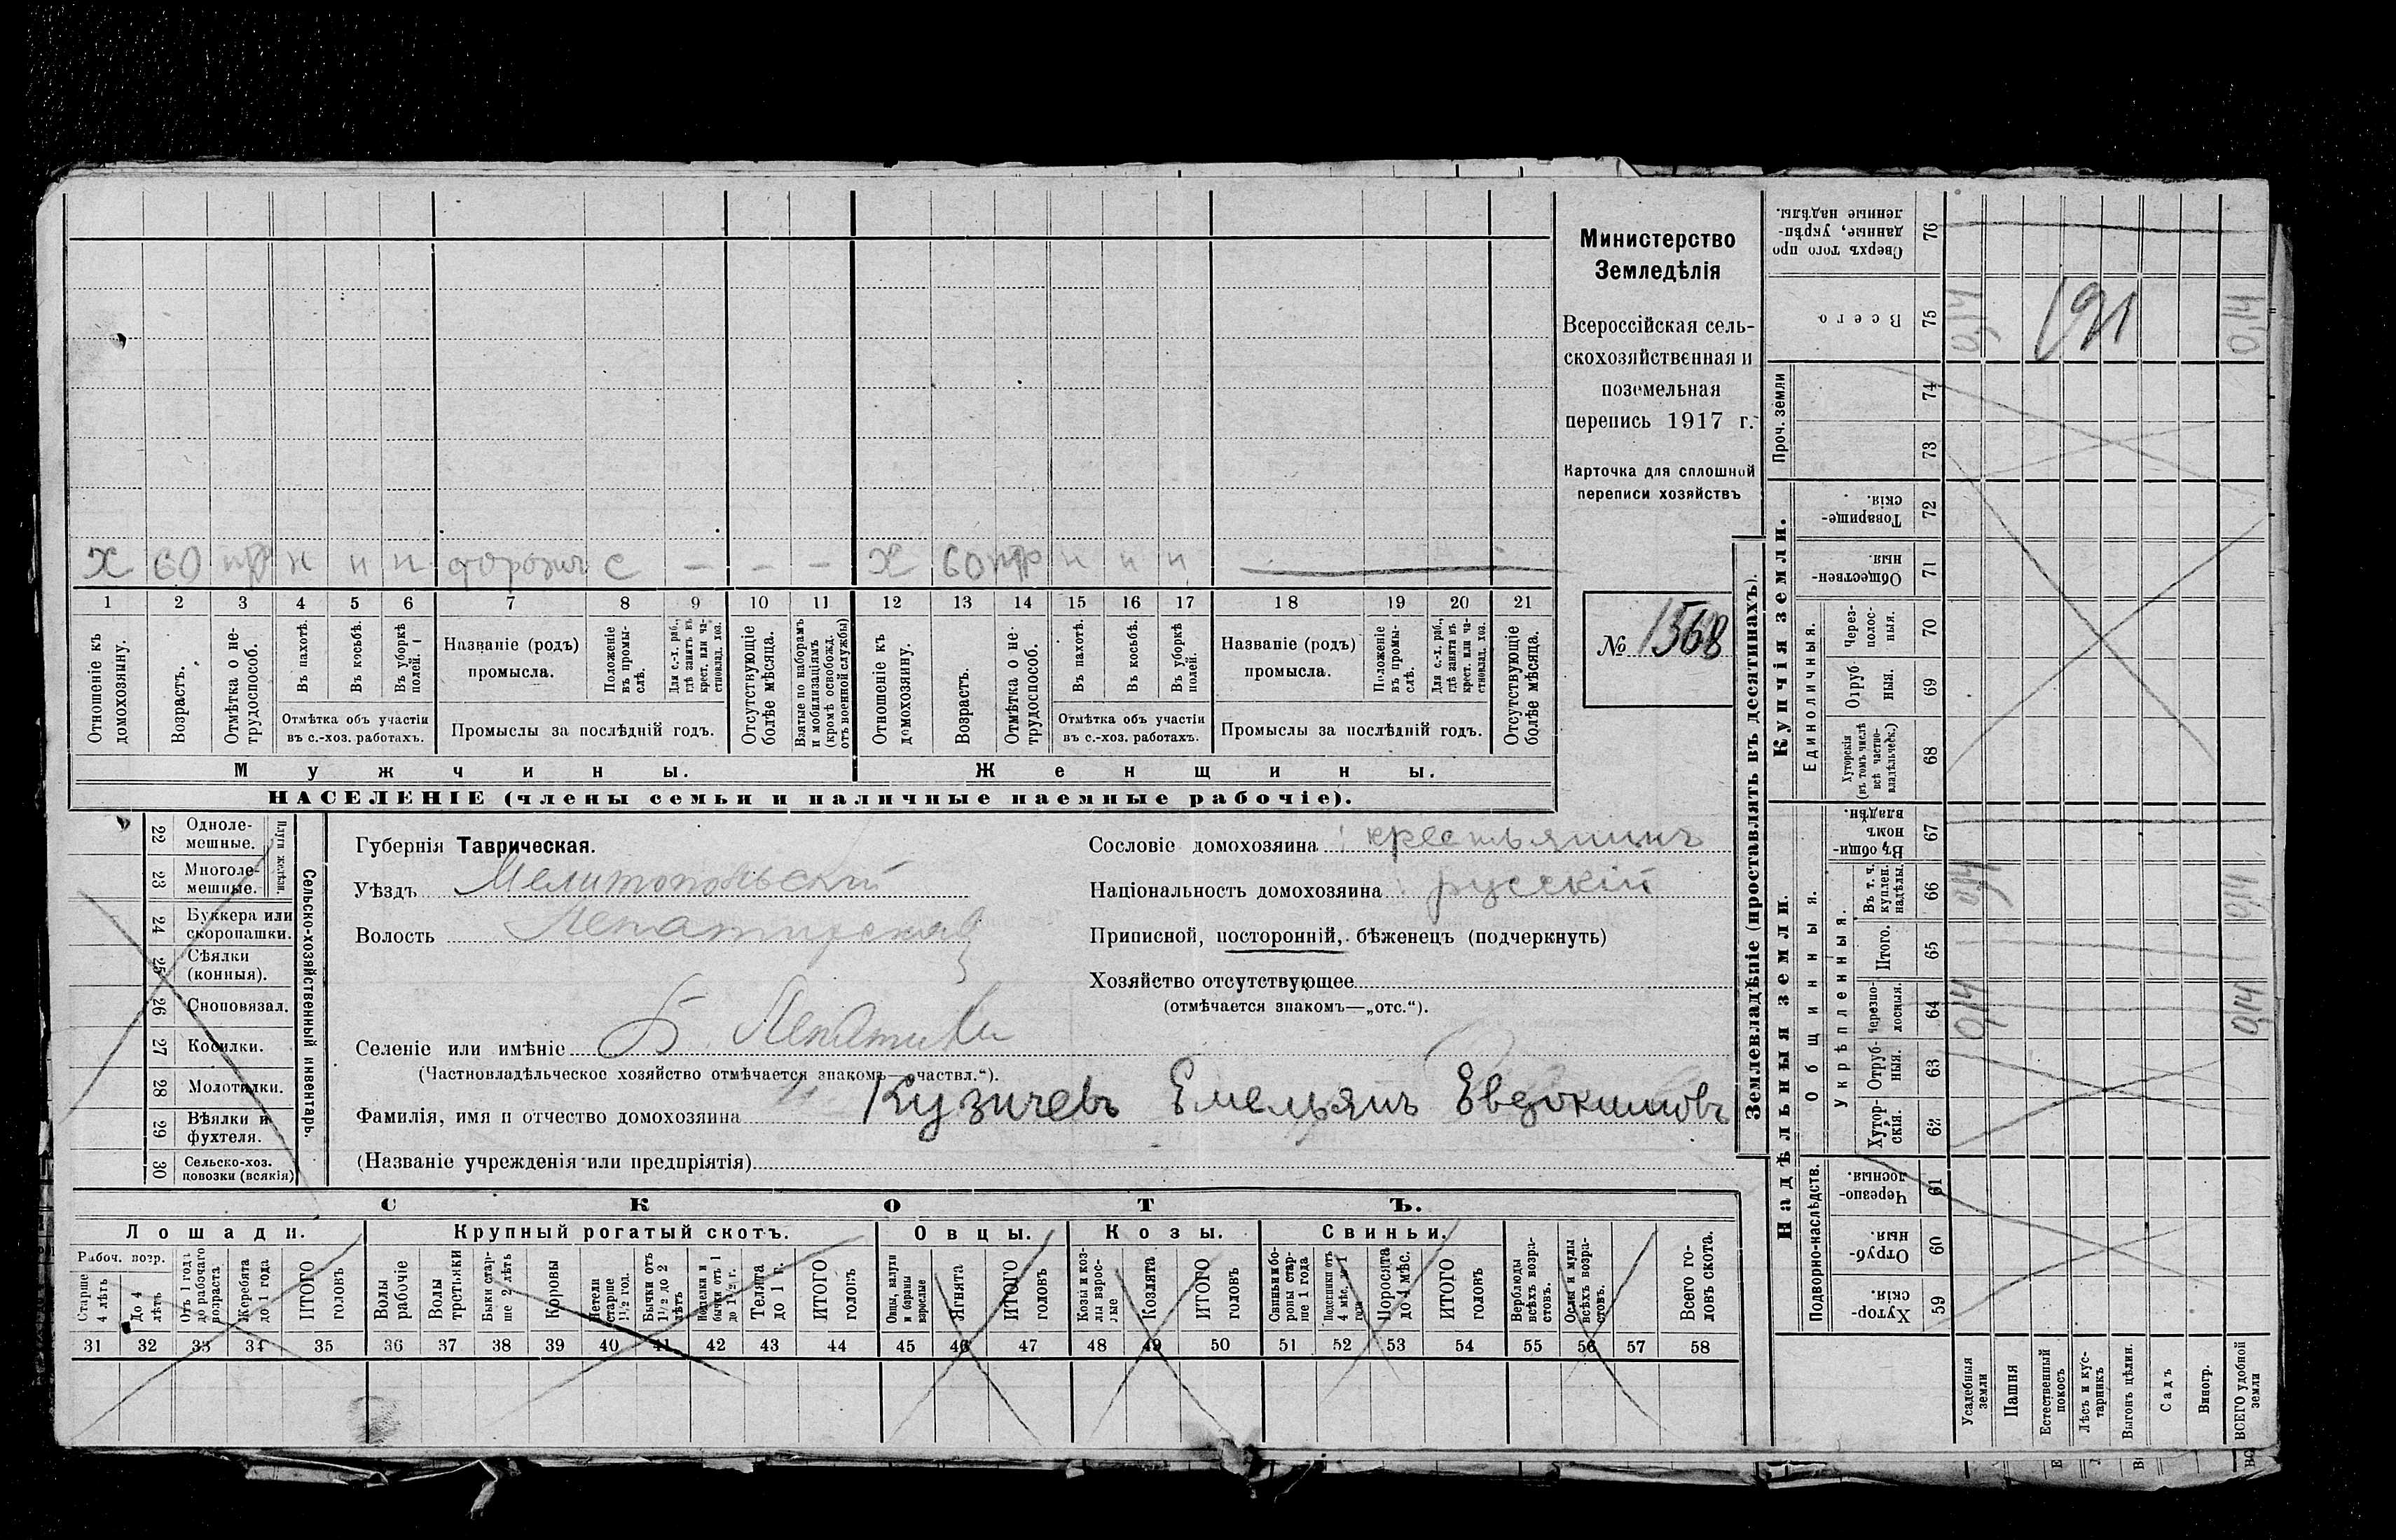 х 60 н н н с — — — х 60 н н н —
1 2 3 4 5 6 7 8 9 10 11 12 13 14 15 16 17 18 19 20 21
Отношеніе къ домохозяину.
Возрастъ.
Отмѣтка о не-трудоспособ.
Въ пахотѣ.
Въ косьбѣ.
Въ уборкѣ полей.
Отмѣтка объ участіи
въ с.-хоз. работахъ.
Названіе (родъ)
промысла.
Положеніе въ промы-слѣ.
Для с.-х. раб., гдѣ занятъ въ крест. или ча-стновлад. хоз.
Промыслы за послѣдній годъ.
Отсутствующіе болѣе мѣсяца.
Взятые по наборамъ и мобилизаціямъ (кромѣ освобожд. отъ военной службы)
Отношеніе къ домохозяину.
Возрастъ.
Отмѣтка о не-трудоспособ.
Въ пахотѣ.
Въ косьбѣ.
Въ уборкѣ полей.
Отмѣтка объ участіи
въ с.-хоз. работахъ.
Названіе (родъ)
промысла.
Положеніе въ промы-слѣ.
Для с.-х. раб., гдѣ занята въ крест. или ча-стновлад. хоз.
Промыслы за послѣдній годъ.
Отсутствующіе болѣе мѣсяца.
Мужчины.
Женщины.
НАСЕЛЕНІЕ (члены семьи и наличные наемные рабочіе).
Министерство
Земледѣлія
Всероссійская сель-
скохозяйственная и
поземельная
перепись 1917 г.
Карточка для сплошной
переписи хозяйствъ
№ 1568
22 Одноле-мешные.
23 Многоле-мешные.
24 Буккера или скоропашки.
25 Сѣялки (конныя).
26 Сноповязал.
27 Косилки.
28 Молотилки.
29 Вѣялки и фухтеля.
30 Сельско-хоз. повозки (всякія)
Сельско-хозяйственный инвентарь.
Губернія Таврическая.
Уѣздъ Мелитопольскій
Волость
Селеніе или имѣніе
(Частновладѣльческое хозяйство отмѣчается знакомъ—„частвл.“).
Фамилія, имя и отчество домохозяина Кузичевъ Емельянъ Евдокимовъ
(Названіе учрежденія или предпріятія)
Сословіе домохозяина крестьянинъ
Національность домохозяина русскій
Приписной, посторонній, бѣженецъ (подчеркнуть)
Хозяйство отсутствующее
(отмѣчается знакомъ—„отс.“).
СКОТЪ.
Лошади. Крупный рогатый скотъ. Овцы. Козы. Свиньи.
Рабоч. возр.
Старше 4 лѣтъ
До 4 лѣтъ
Отъ 1 года до рабочаго возраста
Жеребята до 1 года
ИТОГО головъ
Волы рабочіе
Волы третьяки
Быки стар-ше 2 лѣтъ
Коровы
Нетели старше 1½ год.
Бычки отъ 1½ до 2 лѣтъ
Нетелки и бычки отъ 1 до 1½ г.
Телята до 1 г.
ИТОГО головъ
Овцы, валухи и бараны взрослые
Ягнята
ИТОГО головъ
Козы и коз-лы взрос-лые
Козлята
ИТОГО головъ
Свиньи и бо-ровы стар-ше 1 года
Подсвинки отъ 4 мѣс. до 1 года
Поросята до 4 мѣс.
ИТОГО головъ
Верблюды всѣхъ возра-стовъ.
Ослы и мулы всѣхъ возра-стовъ.
Всего го-ловъ скота.
31 32 33 34 35 36 37 38 39 40 41 42 43 44 45 46 47 48 49 50 51 52 53 54 55 56 57 58
Землевладѣніе (проставлять въ десятинахъ).
Купчія земли.
Надѣльныя земли.
Сверхъ того про-данные, укрѣп-ленные надѣлы. 76
Всего 75 0,14 0,14
191
Проч. земли 74 73
Товарище-скія. 72
Обществен-ныя. 71
Единоличныя.
Через-полос-ныя. 70
Отруб-ныя. 69
Хуторскія (въ томъ числѣ всѣ частно-владѣльческ.) 68
Общинныя.
Въ общи-номъ владѣн. 67
Укрѣпленныя.
Въ т. ч. куплен. надѣлы. 66 0,14 0,14
Итого. 65
Черезпо-лосныя. 64 0,14 0,14
Отруб-ныя. 63
Хутор-скія. 62
Подворно-наслѣдств.
Черезпо-лосныя. 61
Отруб-ныя. 60
Хутор-скія. 59
Усадебныя земли
Пашня
Естественный покосъ
Лѣсъ и кус-тарникъ
Выгонъ цѣлин.
Садъ
Виногр.
ВСЕГО удобной земли